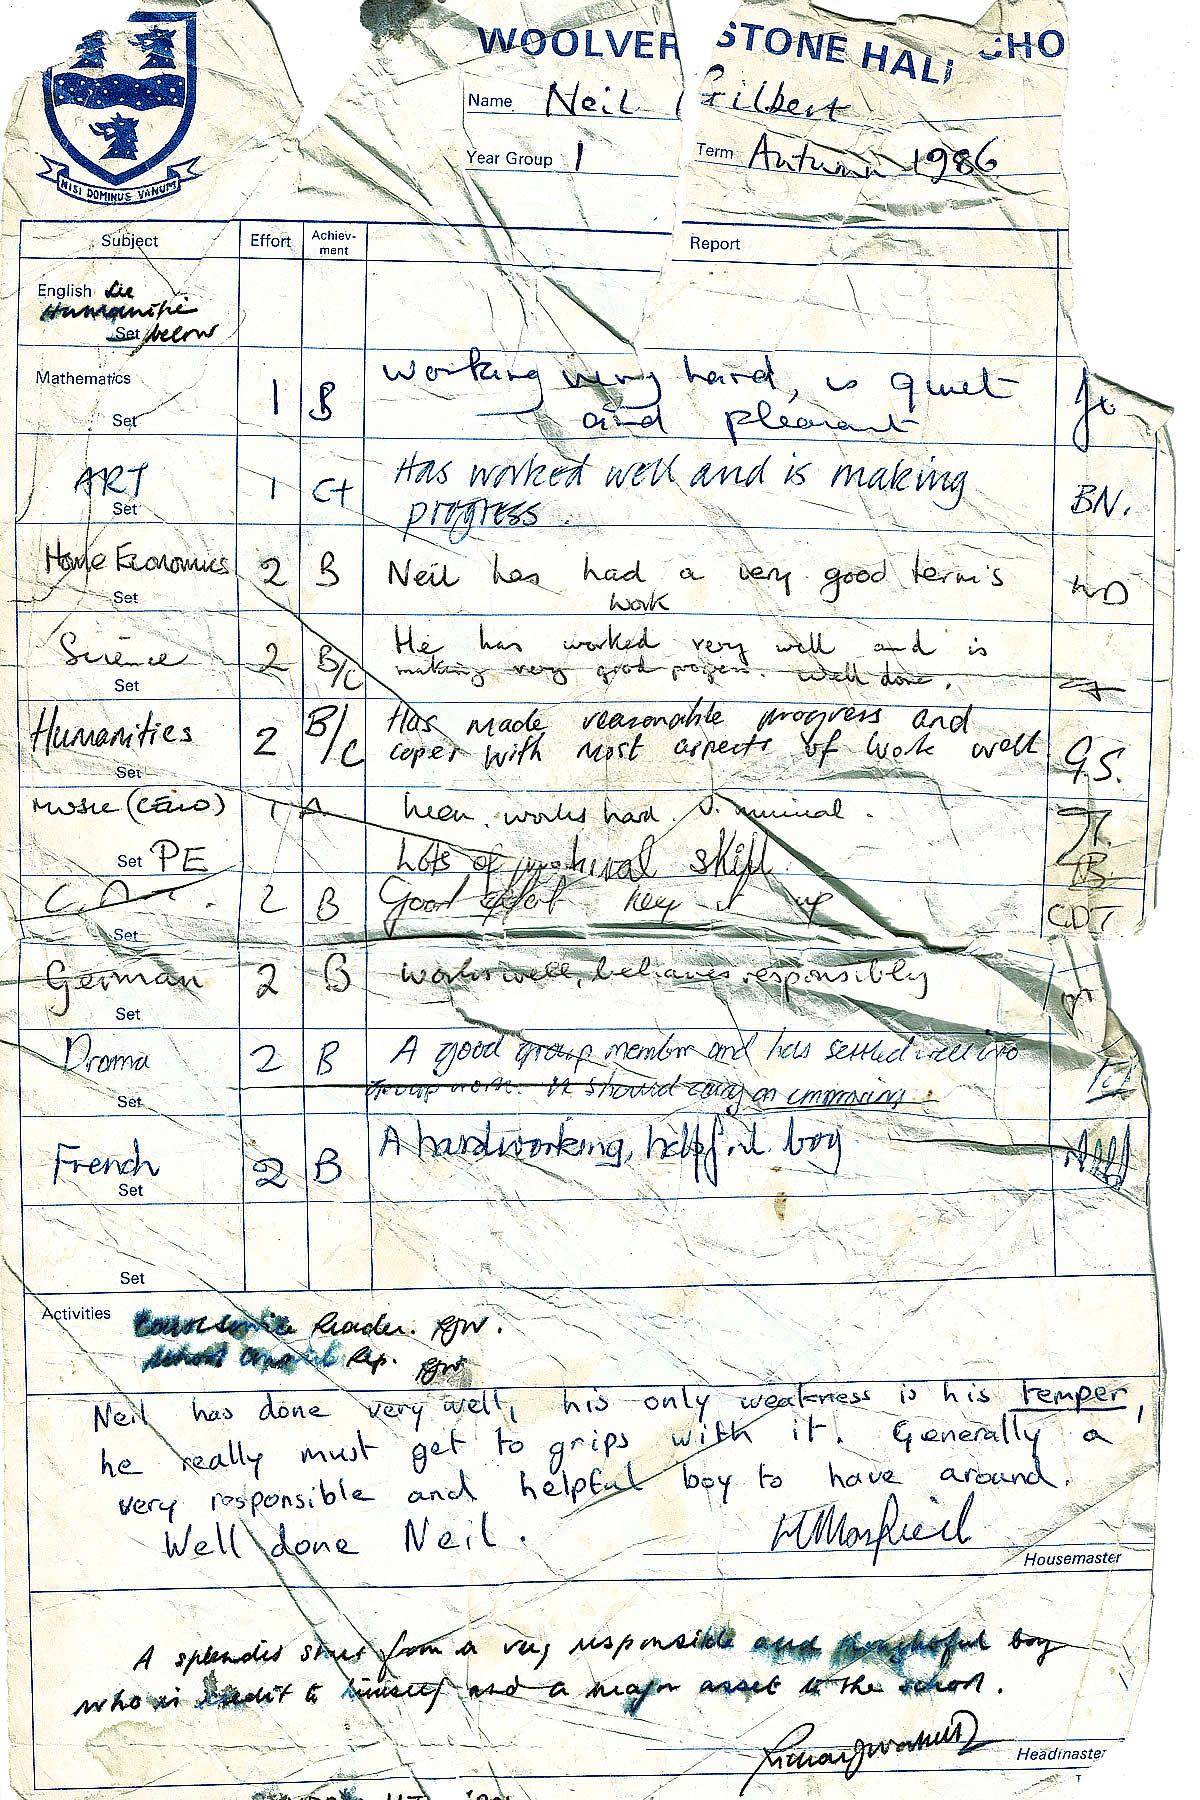 WOOLVER STONE HALL CHO
Name Neil Gilbert
Year Group 1 Term Autumn 1986
NISI DOMINUS VANUM
Subject Effort Achiev-ment Report
English See
Humanities
Set below
Mathematics 1 B working very hard, is quiet
Set and pleasant
ART 1 C+ Has worked well and is making
Set progress. BN.
Home Economics 2 B Neil has had a very good term's
Set work
Science 2 B/C He has worked very well and is
Set making very good progress. Well done.
Humanities 2 B/C Has made reasonable progress and
Set copes with most aspects of work well G.S.
Music (Cello) 1 A Keen. works hard. V. musical.
Set PE Lots of natural skill
2 B Good effort keep it up CDT
Set
German 2 B Works well, behaves responsibly
Set
Drama 2 B A good group member and has settled well into
Set group work. He should carry on
French 2 B A hardworking, helpful boy
Set
Set
Activities Reader. RJW.
School Council Rep. RJW
Neil has done very well, his only weakness is his temper,
he really must get to grips with it. Generally a
very responsible and helpful boy to have around.
Well done Neil.
Housemaster
A splendid start from a very responsible and thoughtful boy
who is credit to himself and a major asset to the school.
Headmaster